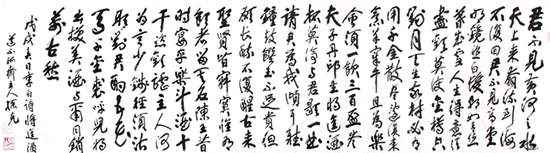 君不见黄河之水
天上来奔流到海
不复回君不见高堂
明镜悲白发朝如青丝
暮成雪人生得意须
尽欢莫使金樽空
对月天生我材必有
用千金散尽还复来
烹羊宰牛且为乐
会须一饮三百杯岑
夫子丹丘生将进酒
杯莫停与君歌一曲
请君为我倾耳听
钟鼓馔玉不足贵但
愿长醉不复醒古来
圣贤皆寂寞惟有饮
者留其名陈王昔
时宴平乐斗酒十
千恣欢谑主人何
为言少钱径须沽
取对君酌五花
马千金裘呼儿将
出换美酒与尔同销
万古愁
戊戌春日李白诗将进酒
斋主人